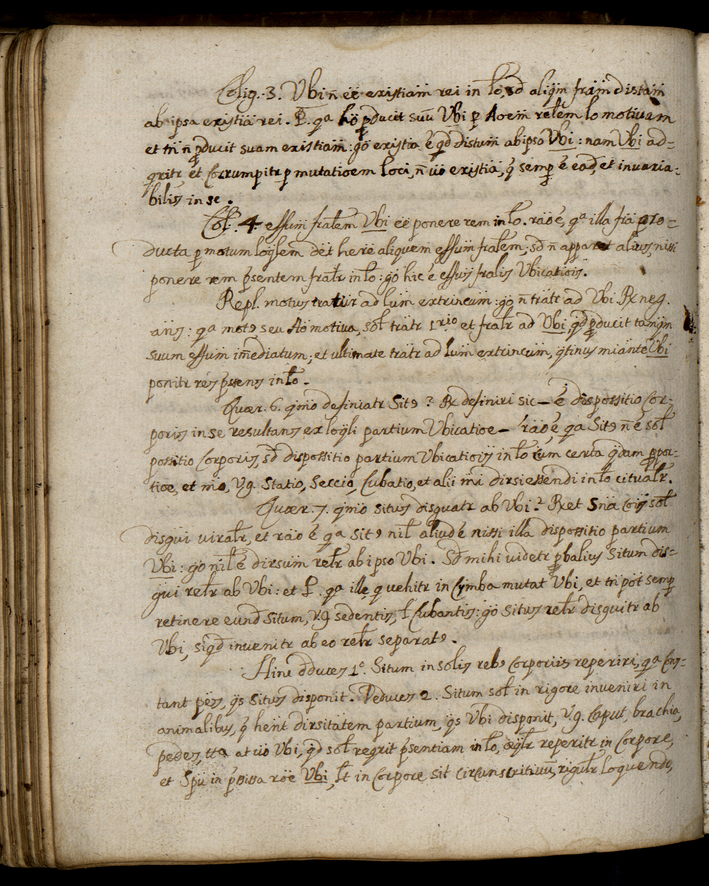 Collig. 3. Ubi n̄ eē existīam rei in lo, sd aliqm fram distam
ab ipsa existīa rei. P. qa hō pducit suū Ubi p Aōem relem lomotivam
et tn̄ n̄ pducit suam existiam: gō existīa ē qd distum ab ipso Ubi: nam Ubi ad=
qritr et corrumpitr p mutatioem loci, n̄ vō existīa, q semp ē ead, et invaria=
bilis in se.
Col. 4 essum fralem Ubi eē ponere rem in lo. raō ē, qa illa fra pro=
ducta p motum loglem dēt here aliquem essum fralem; sd n̄ apparet alius, nisi
ponere rem psentem fralr in lo: gō hic ē essus fralis Ubicatiois.
Repl. motus tratur ad lum extrincum: gō n̄ tratr ad Ubi. R neg.
ans: qa mot9 seu Aō motiva, sol tratr 1rio et fralr ad Ubi, qd pducit tamqm
suum essum imediatum; et ultimate tratr ad lum extrincum, qtinus miante Ubi
ponitr res psens in lo.
Quær. 6. qmo definiatr Sit9? R definiri sic — ē dispossitio cor-
poris in se resultans ex logli partium Ubicatioe — raō ē, qa Sit9 n̄ ē sol
possitio corporis, sd dispossitio partium Ubicatiois in lo cum certa qdam ppor-
tioe, et mō, v.g. Statio, Seccio, Cubatio, et alii mi dirsi essendi in lo citualr.
Quær. 7. qmo situs disguatr ab Ubi? R et Sna cois sol
disgui viralr, et raō ē qa sit9 nil aliud ē nissi illa dispossitio partium
Ubi: gō nil ē dirsum relr ab ipso Ubi. Sd mihi videtr pbalius Situm dis=
gui relr ab Ubi: et P. qa ille q vehitr in Cymba mutat Ubi, et tn̄ pōt semp
retinere eund situm, v.g. sedentis, l Cubantis: gō Situs relr disguitr ab
Ubi, siqd invenitr ab eo relr separat9.
Hinc dduces 1º. Situm in solis reb9 corporiis reperiri, qa cons-
tant pes, qs Situs disponit. Deduces 2. Situm sol in rigore inveniri in
animalibus, q hent dirsitatem partium, qs Ubi disponit, v.g. Caput, brachia,
pedes, at vō Ubi, qd sol reqrit psentiam in lo, reperitr in Corpore,
et Spu in pssisa raōe Ubi, lt in Corpore sit circunscritivū, rigulr loquendo,